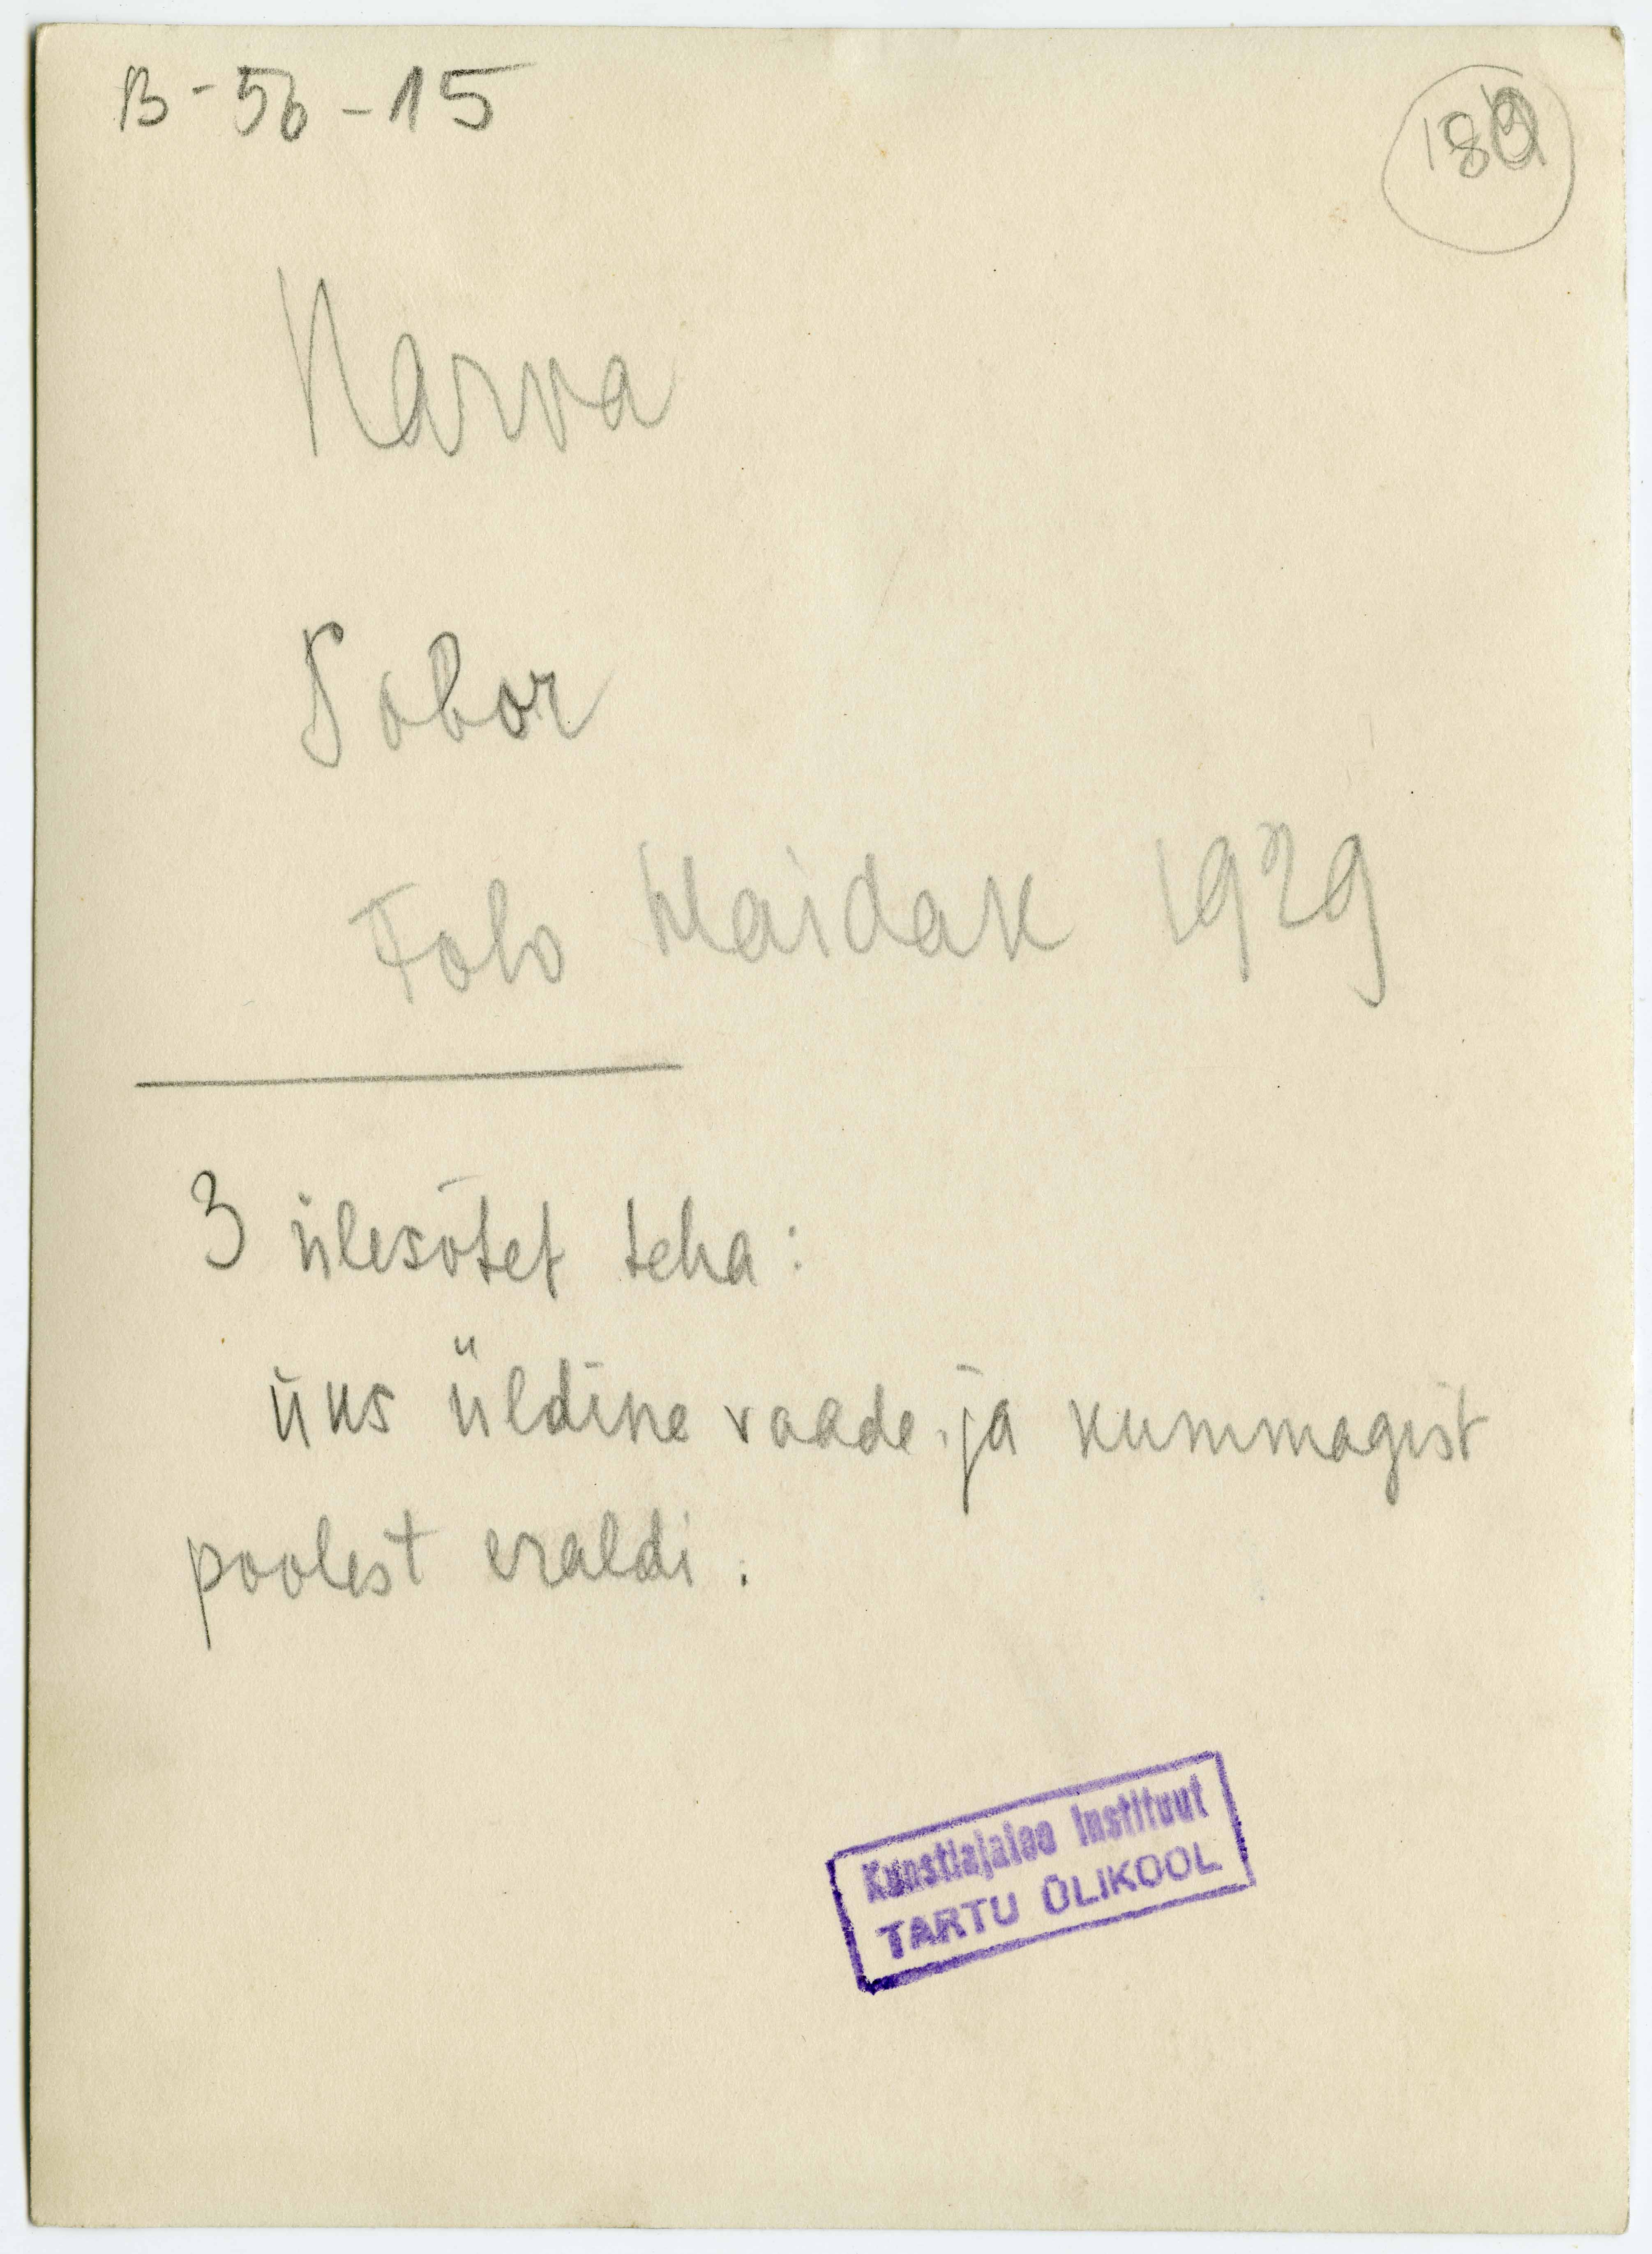 B-56-15
Narva
Sobor
Foto Maidak 1929
3 ülesõtet teha:
üks üldine vaade ja kummagist
poolest eraldi.
Kunstiajaloo Instituut
TARTU ÜLIKOOL